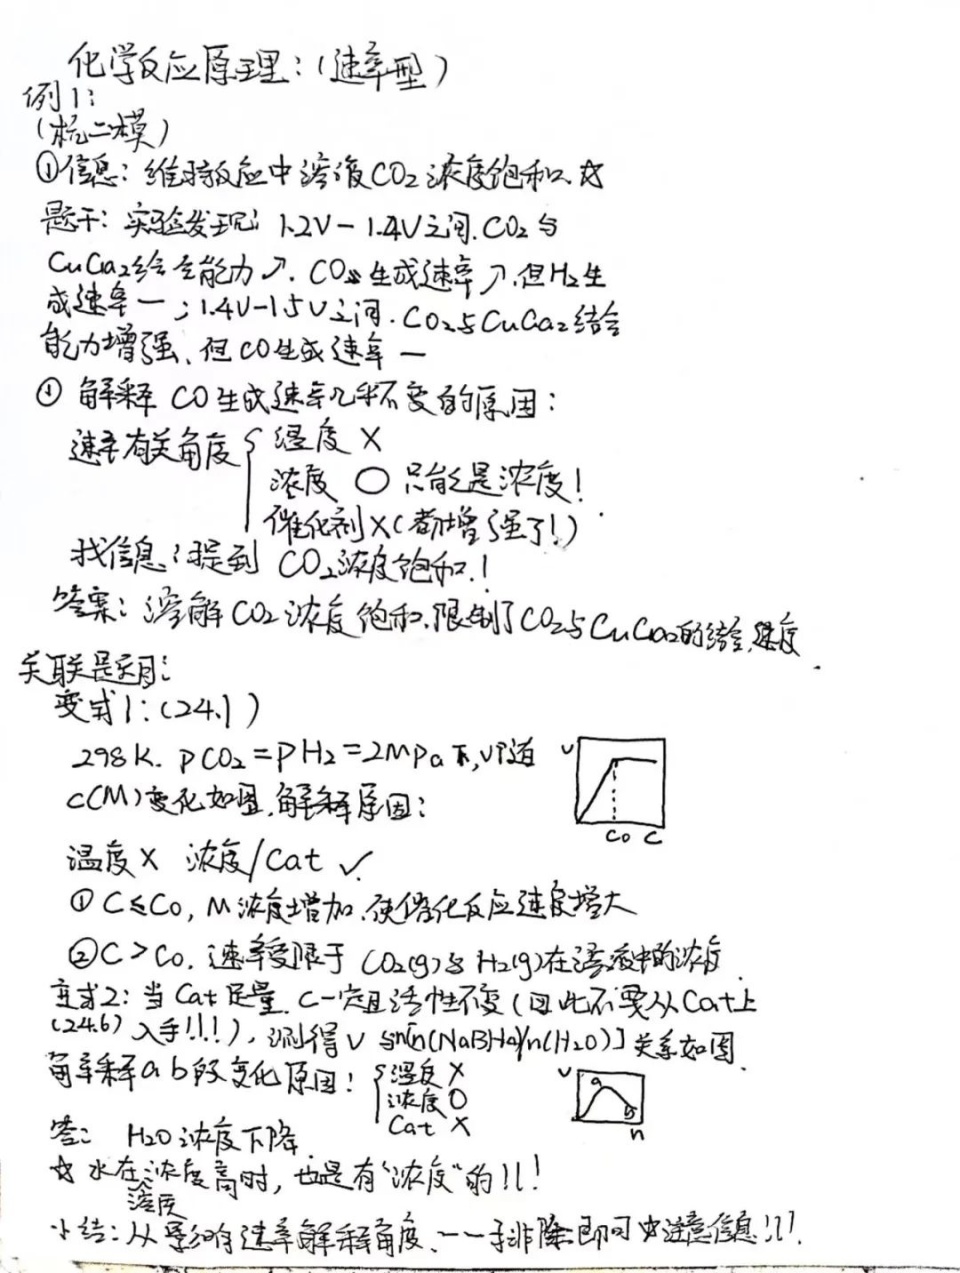 化学反应原理：（速率型）
例1：
（杭二模）
①信息：维持反应中溶液CO2浓度饱和.☆
题干：实验发现：1.2V-1.4V之间.CO2与
CuGa2结合能力↗.CO生成速率↗.但H2生
成速率一；1.4V-1.5V之间.CO2与CuGa2结合
能力增强、但CO生成速率一
① 解释CO生成速率几乎不变的原因：
速率有关角度
温度 X
浓度 ○ 只能是浓度！
催化剂X（都增强了！）
找信息：提到CO2浓度饱和.！
答案：溶解CO2浓度饱和.限制了CO2与CuGa2的结合速度.
关联是题目：
变式1：（24.1）
298K. pCO2=pH2=2MPa下,v随
c(M)变化如图.解释原因：
v
C0 C
温度X 浓度/Cat ✓
① C≤C0, M浓度增加.使催化反应速度增大
②C>C0. 速率受限于CO2(g)与H2(g)在溶液中的浓度.
变式2：当Cat足量.C一定且活性不变（因此不要从Cat上
（24.6）入手!!!），测得v与n[n(NaBH4)/n(H2O)]关系如图.
解释ab段变化原因：
温度X
浓度O
Cat X
v
a
b
n
答： H2O浓度下降.
☆ 水在浓度高时，也是有“浓度”的!!！
溶质
小结：从影响速率解释角度、一一排除即可☆注意信息!!!